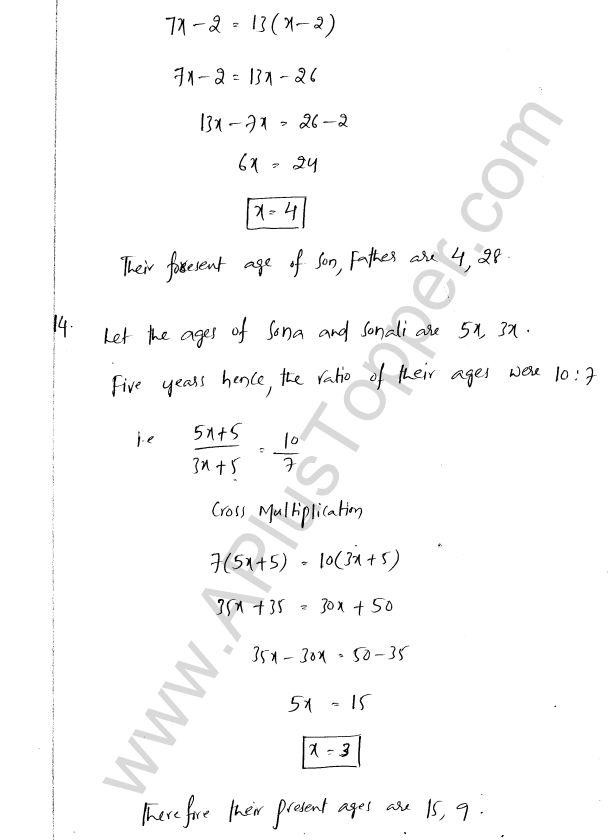 7x - 2 = 13(x - 2)
7x - 2 = 13x - 26
13x - 7x = 26 - 2
6x = 24
x = 4
Their present age of son, Father are 4, 28.
14. Let the ages of Sona and Sonali are 5x, 3x.
Five years hence, the ratio of their ages were 10:7
i.e (5x+5)/(3x+5) = 10/7
Cross Multiplication
7(5x+5) = 10(3x+5)
35x + 35 = 30x + 50
35x - 30x = 50 - 35
5x = 15
x = 3
Therefore their present ages are 15, 9.
www.APlusTopper.com